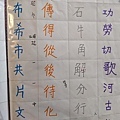 功勞切歌河古
石牛角解分行
傳得從後待他
布希市共片文